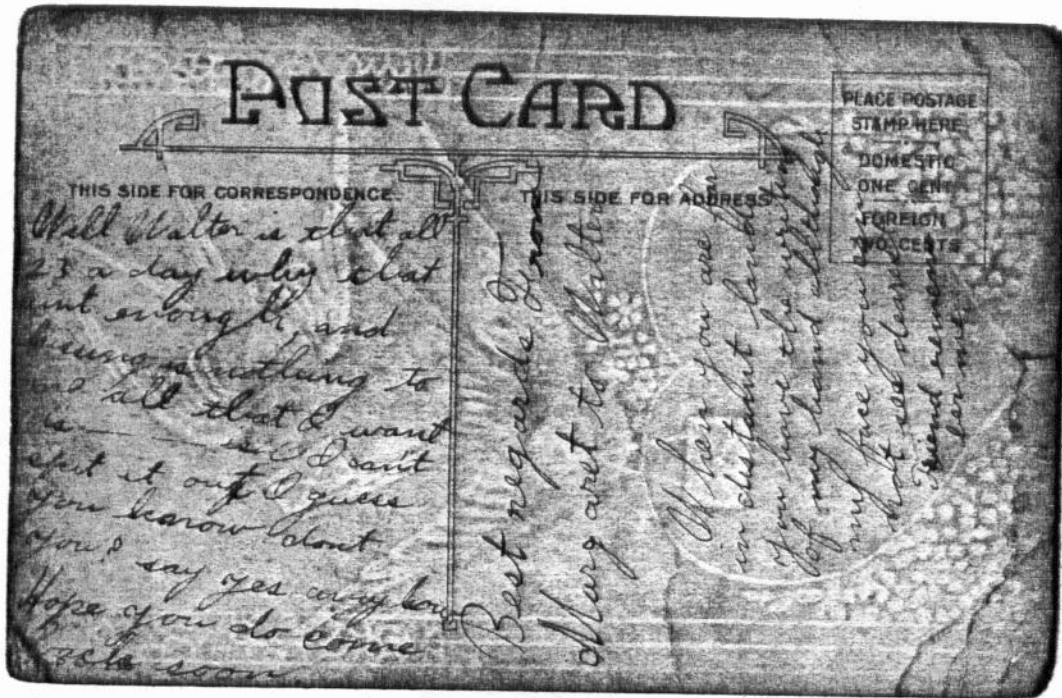 POST CARD
PLACE POSTAGE
STAMP HERE
DOMESTIC
ONE CENT
FOREIGN
TWO CENTS
THIS SIDE FOR CORRESPONDENCE.
THIS SIDE FOR ADDRESS
Well Walter is that all
23 a day why that
aint enough, and
is nothing to
me all that I want
is — — is I can't
spit it out I guess
you know dont
you? say yes any how
Hope you do come
back soon
Best regards From
Margaret to Walter
When you are far
in distant lands
you have the writing
of my hand although
my face you can
not see dearest
Friend remem
ber me.